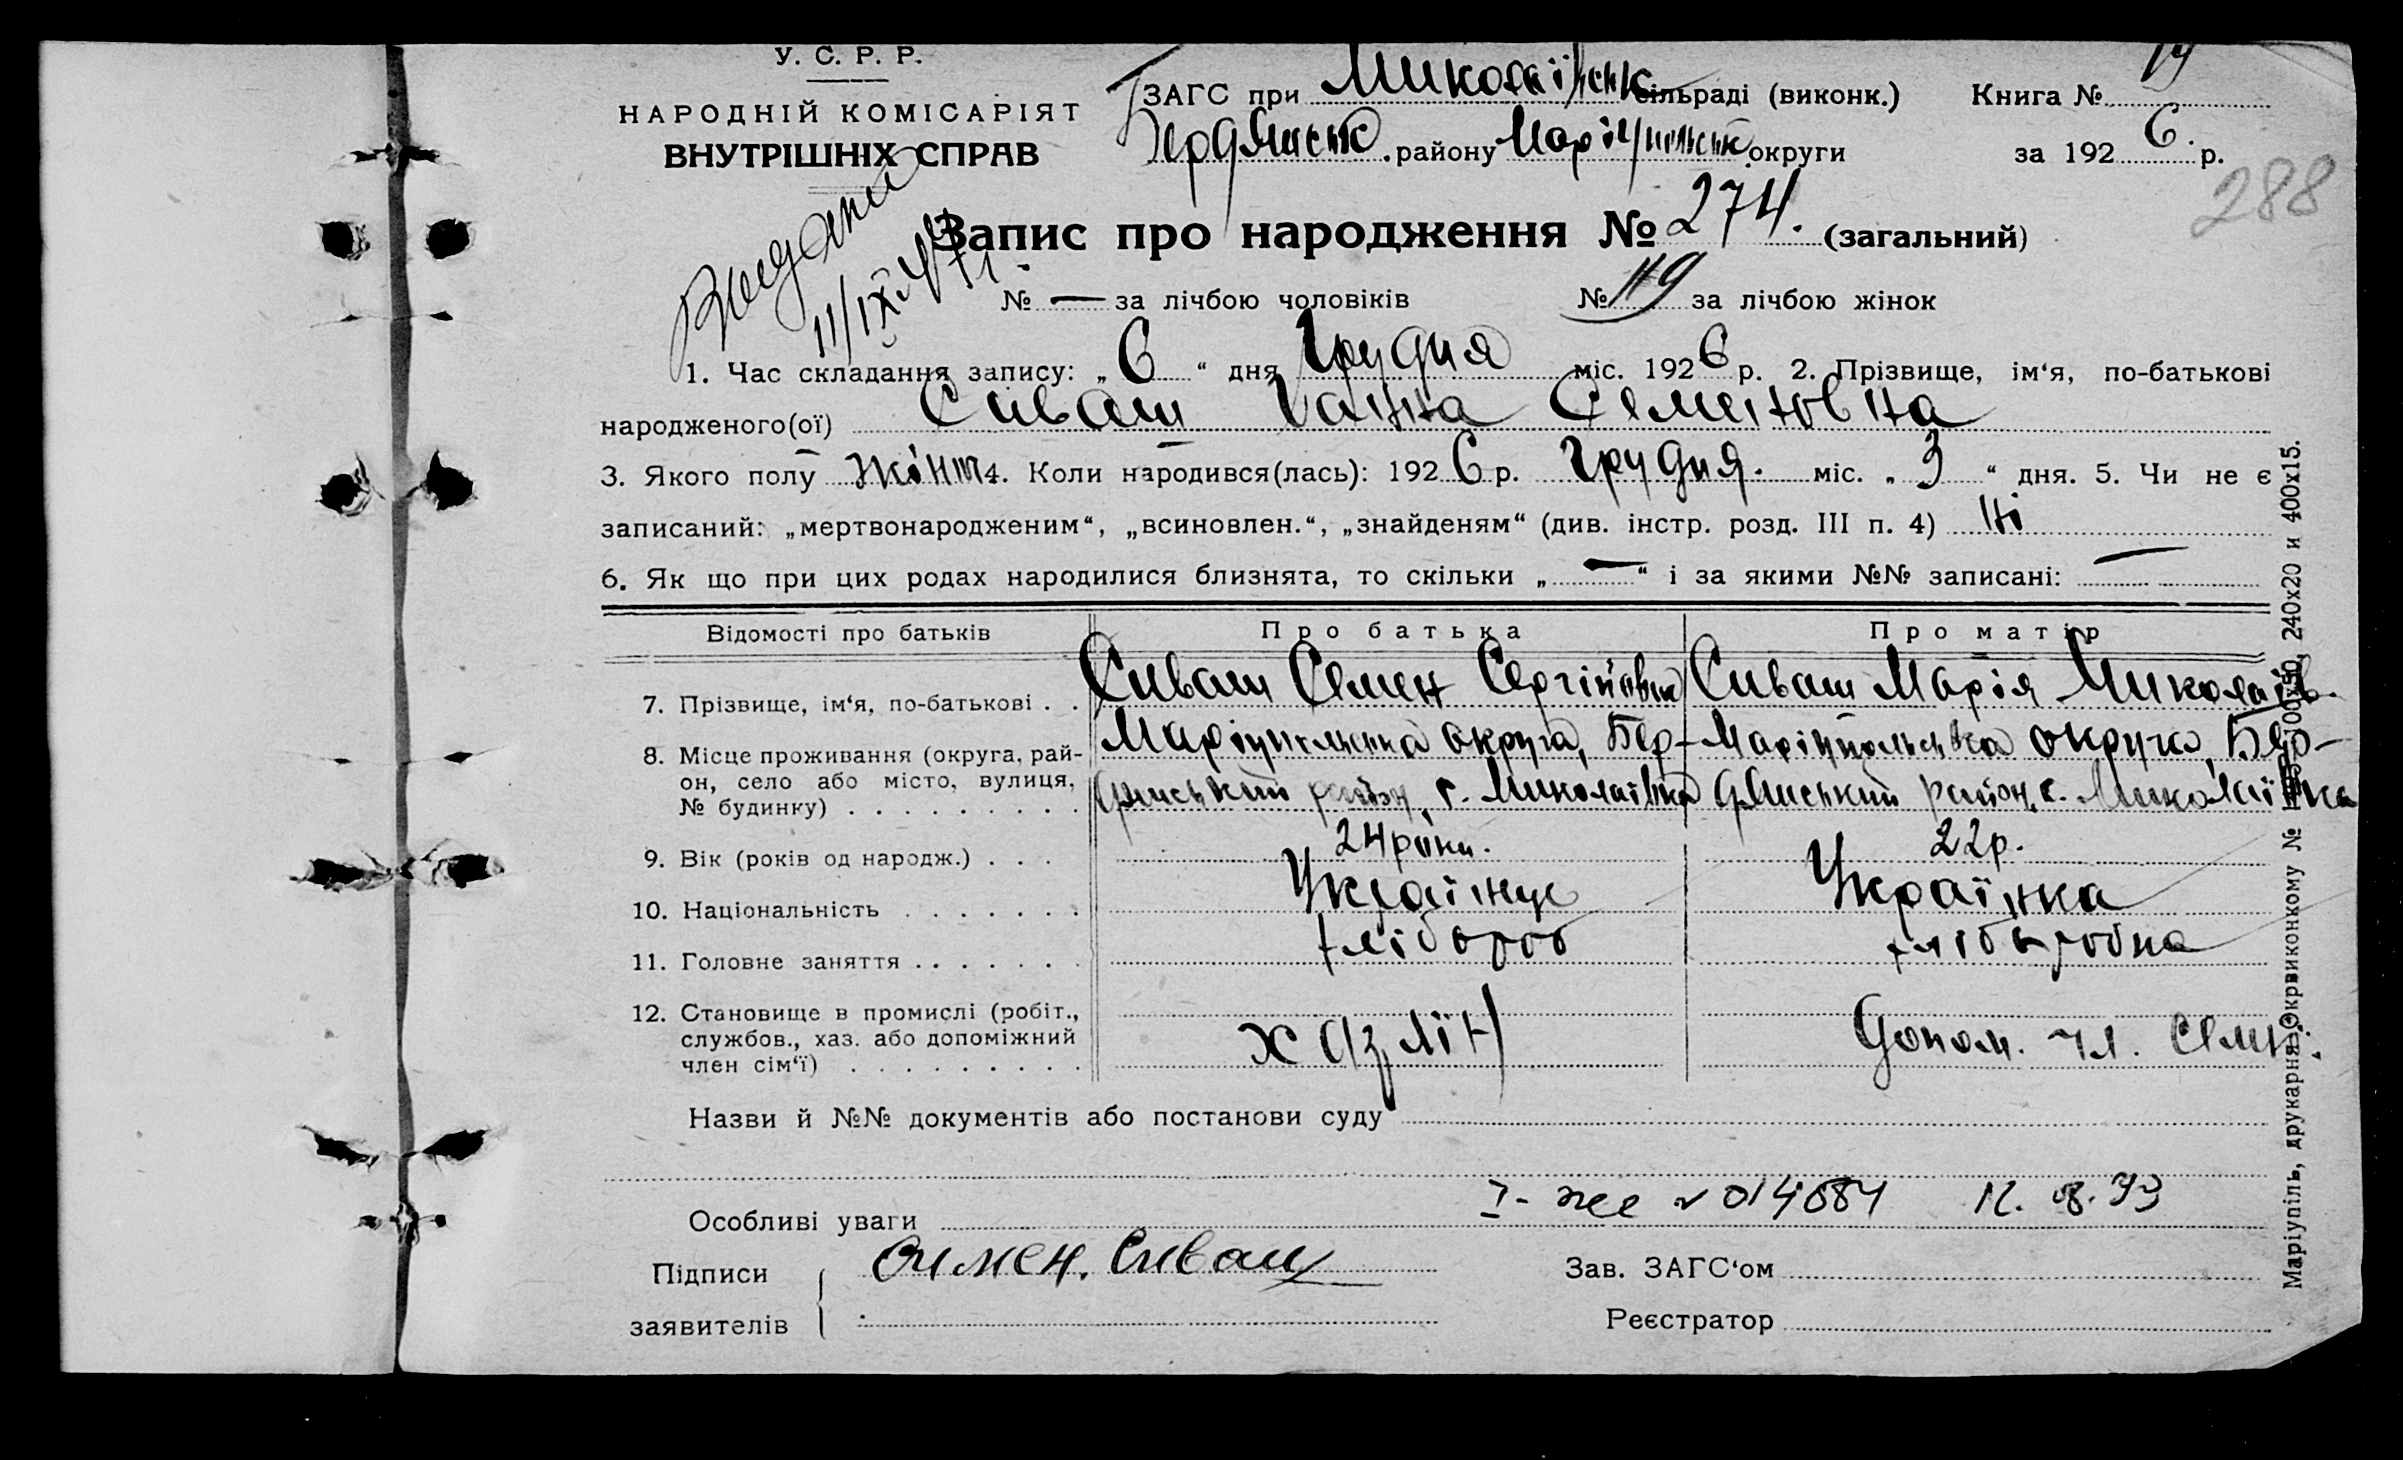 У. С. Р. Р.
НАРОДНІЙ КОМІСАРІЯТ
ВНУТРІШНІХ СПРАВ
ЗАГС при Миколаївськ сільраді (виконк.) Книга №
Бердянськ. району Маріупольськ. округи за 1926. р.
288
Запис про народження № 274. (загальний)
№ — за лічбою чоловіків № 119 за лічбою жінок
1. Час складання запису: „ 6 “ дня Грудня міс. 1926 р. 2. Прізвище, ім‘я, по-батькові
народженого(ої) Сиваш Ганна Семеновна
3. Якого полу жіноч 4. Коли народився(лась): 1926 р. Грудня. міс. „ 3 “ дня. 5. Чи не є
записаний: „мертвонародженим“, „всиновлен.“, „знайденям“ (див. інстр. розд. III п. 4) ні
6. Як що при цих родах народилися близнята, то скільки „ — “ і за якими №№ записані: —
Відомості про батьків Про батька Про матір
7. Прізвище, ім‘я, по-батькові . . Сиваш Семен Сергійович Сиваш Марія Миколаїв.
8. Місце проживання (округа, рай- Маріупільська округа, Бер- Маріупольська округа, Бер-
он, село або місто, вулиця, дянський район, с. Миколаївка дянський район, с. Миколаївка
№ будинку) . . . . . . . . .
9. Вік (років од народж.) . . . 24 роки. 22 р.
10. Національність . . . . . . . Українц Українка
11. Головне заняття . . . . . . . хлібороб хліборобка
12. Становище в промислі (робіт.,
службов., хаз. або допоміжний допом. чл. сем.
член сім‘ї) . . . . . . . . .
Назви й №№ документів або постанови суду
Особливі уваги
Підписи Симен. Сиваш Зав. ЗАГС‘ом
заявителів Реєстратор
Маріупіль, друкарня Окрвиконкому № 240х20 и 400х15.